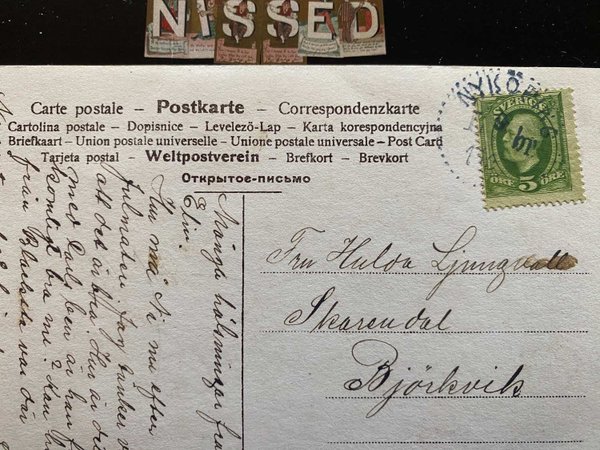 NISSED
Carte postale – Postkarte – Correspondenzkarte
Cartolina postale – Dopisnice – Levelező-Lap – Karta korespondencyjna
Briefkaart – Union postale universelle – Unione postale universale – Post Card
Tarjeta postal – Weltpostverein – Brefkort – Brevkort
Открытое-письмо
NYKÖPING
SVERIGE
5
ÖRE ÖRE
Fru Hulda Ljungvall
Skarendal
Björkvik
Många hälsningar fra
Elin.
Hur må Ni nu efter
Julmaten. Jag tänker
att det är bra. Hur är
med Carls ben är han
komligt bra nu? Kan
från Blacksta var där